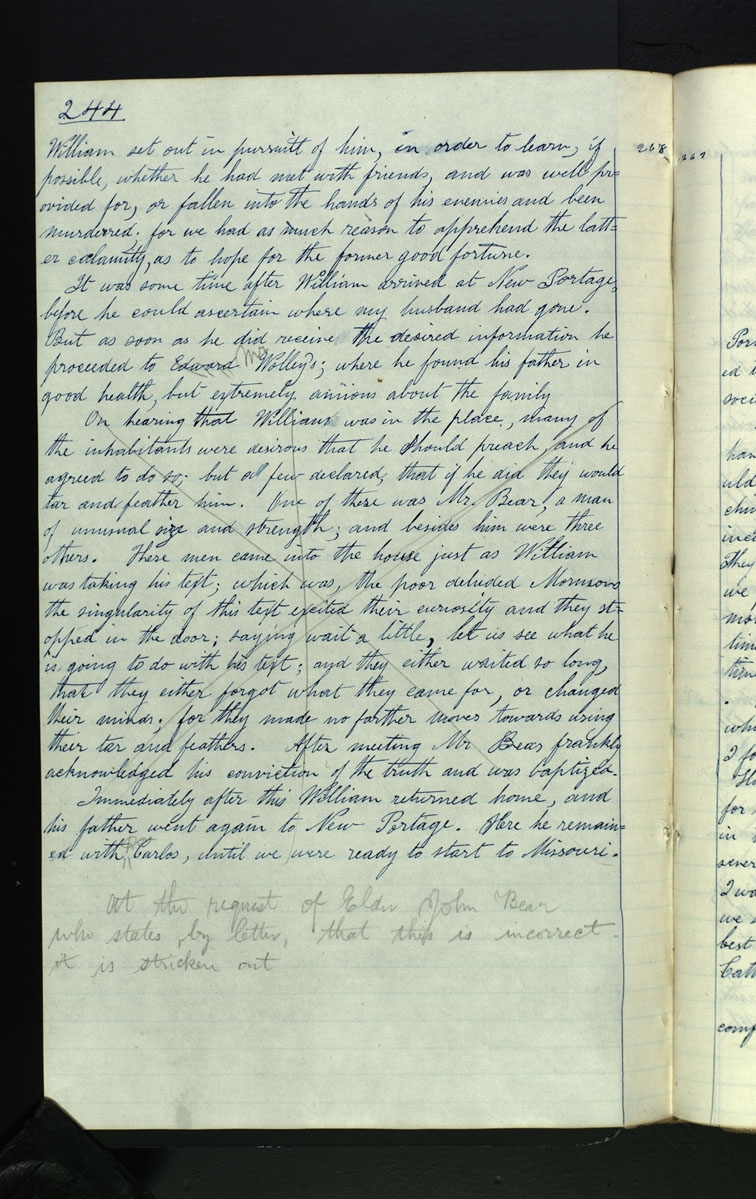 244
William set out in pursuitt of him, in order to learn, if
possible, whether he had met with friends, and was well pr=
ovided for, or fallen into the hands of his enemies and been
murdered. for we had as much reason to apprehend the latt=
er calamity, as to hope for the former good fortune.
It was some time after William arrived at New Portage,
before he could ascertain where my husband had gone.
But as soon as he did receive the desired information he
proceeded to Edward Wolley's; where he found his father in
good health, but extremely anxious about the family
On hearing that William was in the place, many of
the inhabitants were desirous that he should preach, and he
agreed to do so; but a few declared, that if he did they would
tar and feather him. One of these was Mr. Bear, a man
of unusual size and strength; and besides him were three
others. These men came into the house just as William
was taking his text; which was, the poor deluded Mormons
the singularity of this text excited their curiosity and they st=
opped in the door; saying wait a little, let us see what he
is going to do with his text; and they either waited so long,
that they either forgot what they came for, or changed
their minds; for they made no farther moves towards using
their tar and feathers. After meeting Mr. Bear frankly
acknowledged his conviction of the truth and was baptized.
Immediately after this William returned home, and
his father went again to New Portage. Here he remain=
ed with Carlos, until we were ready to start to Missouri.
At the request of Elder John Bear
who states by letter, that this is incorrect
it is stricken out
268
267